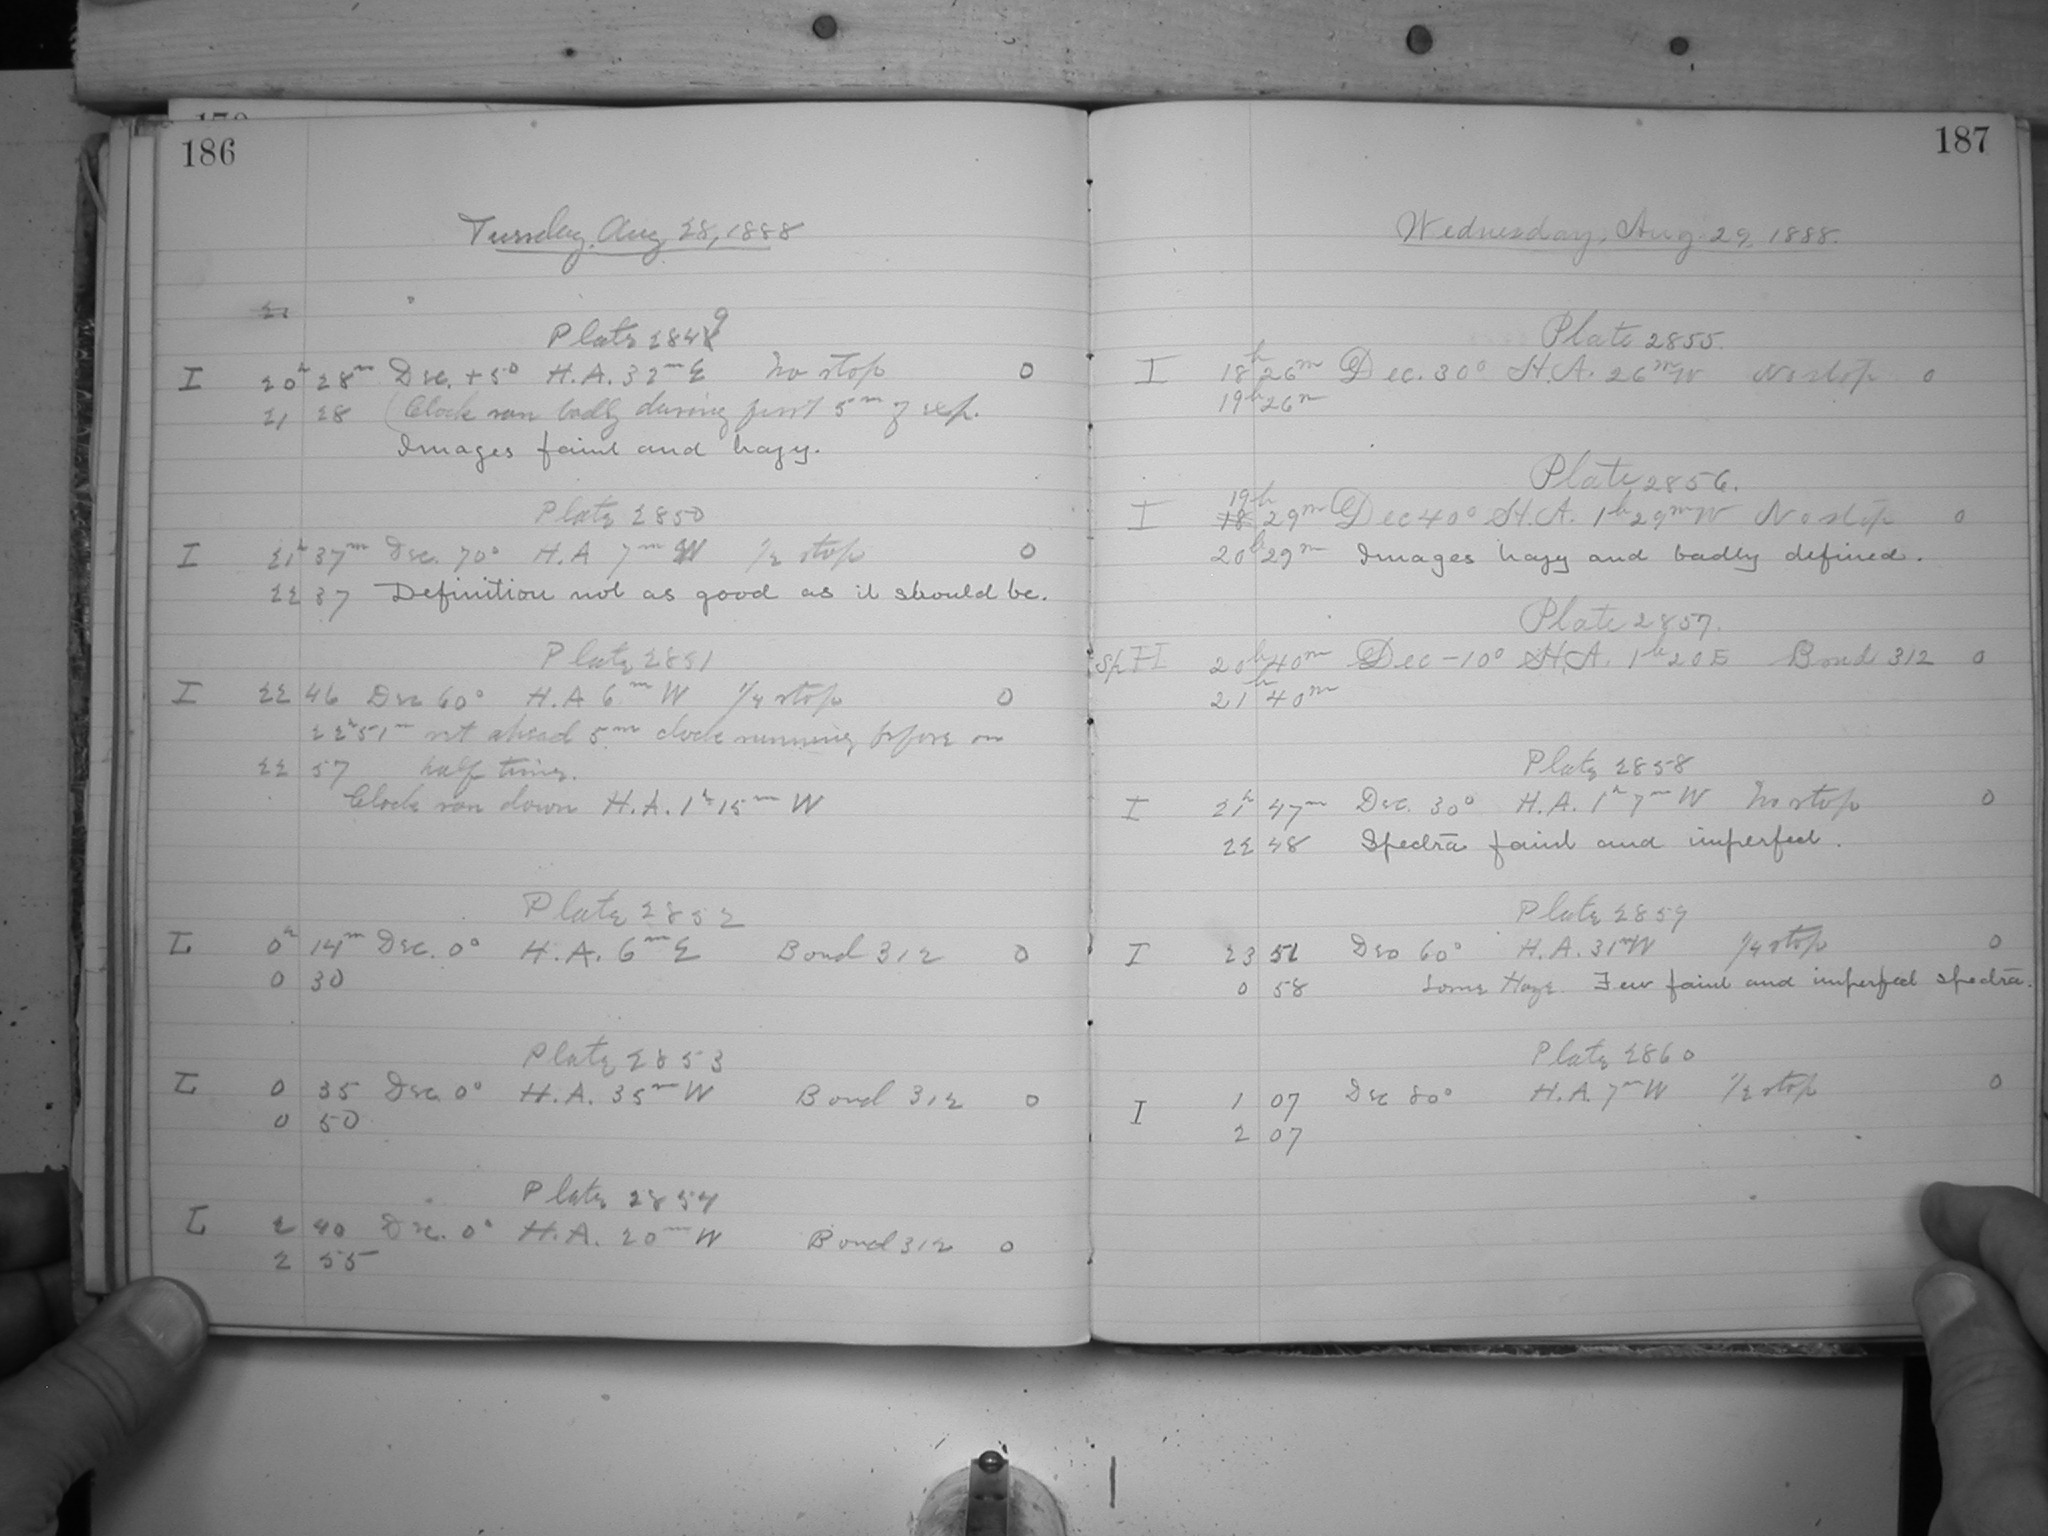 186
Tuesday, Aug 28, 1888
Plate 2849
I 20h 28m Dec. +5° H.A. 32m E No stop 0
21 28 (Clock ran badly during first 5m of exp.
Images faint and hazy.
Plate 2850
I 21h 37m Dec. 70° H.A 7m W 1/2 stop 0
22 37 Definition not as good as it should be.
Plate 2851
I 22 46 Dec 60° H.A 6m W 1/4 stop 0
22h 51m set ahead 5m clock running before on
22 57 half time.
Clock ran down H.A. 1h 15m W
Plate 2852
I 0h 14m Dec. 0° H.A. 6m E Bond 312 0
0 30
Plate 2853
I 0 35 Dec. 0° H.A. 35m W Bond 312 0
0 50
Plate 2854
I 2 40 Dec. 0° H.A. 20m W Bond 312 0
2 55
187
Wednesday, Aug. 29, 1888.
Plate 2855.
I 18h 26m Dec. 30° H.A. 26m W No stop 0
19h 26m
Plate 2856.
I 19h 29m Dec 40° H.A. 1h 29m W No stop 0
20h 29m Images hazy and badly defined.
Plate 2857.
Sp II 20h 40m Dec -10° H.A. 1h 20 E Bond 312 0
21h 40m
Plate 2858
I 21h 47m Dec. 30° H.A. 1h 7m W No stop 0
22 48 Spectra faint and imperfect.
Plate 2859
I 23 51 Dec 60° H.A. 31m W 1/4 stop 0
0 58 Some Haze. Few faint and imperfect spectra.
Plate 2860
I 1 07 Dec 80° H.A. 7m W 1/2 stop 0
2 07